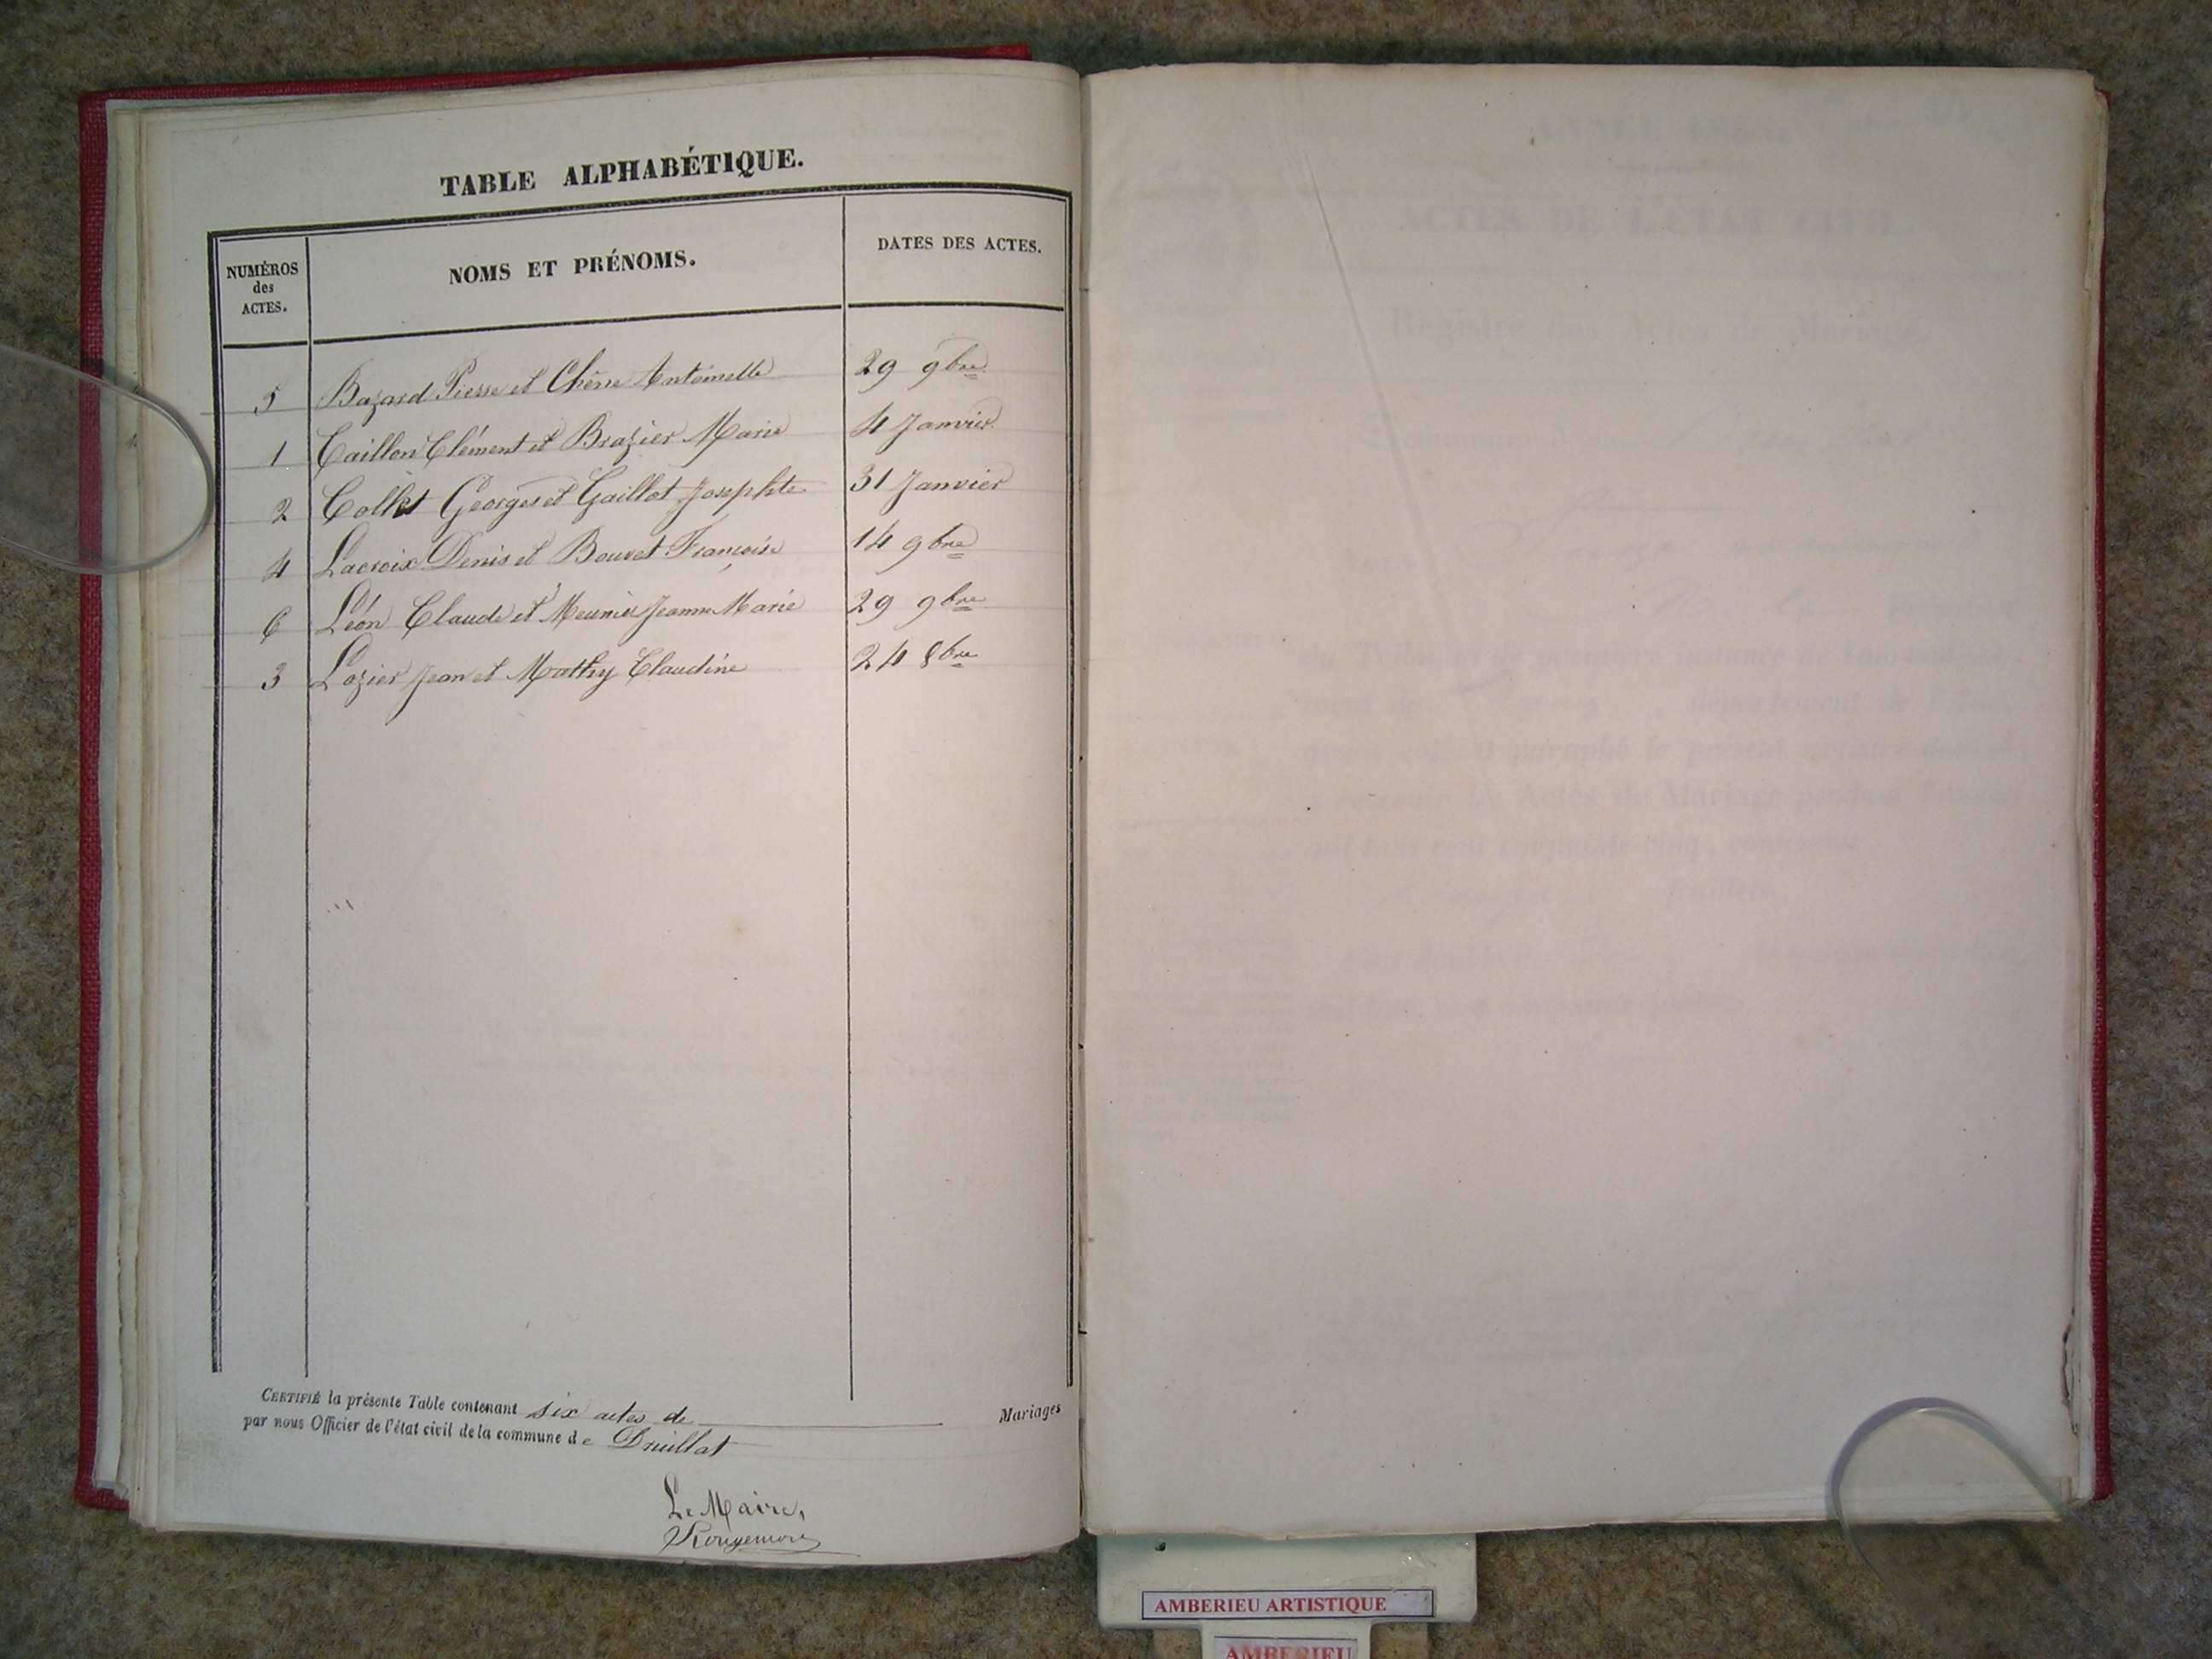 TABLE ALPHABÉTIQUE.
NUMÉROS des ACTES. NOMS ET PRÉNOMS. DATES DES ACTES.
5 Bazard Pierre et Chêne Antoinette 29 9bre
1 Caillon Clément et Brazier Marie 4 Janvier
2 Collet Georges et Gaillot Josephte 31 Janvier
4 Lacroix Denis et Bouvet Françoise 14 9bre
6 Léon Claude et Meunier Jeanne Marie 29 9bre
3 Lozier Jean et Mathy Claudine 24 8bre
CERTIFIÉ la présente Table contenant six actes de Mariages
par nous Officier de l'état civil de la commune de Druillat
Le Maire,
Rougemont
AMBERIEU ARTISTIQUE
AMBERIEU